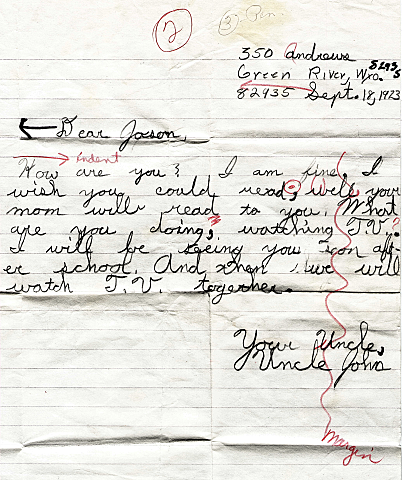 2
3 Pen.
350 Andrews
Green River, Wyo. 82935
82935 Sept. 18, 1923
Dear Jason,
indent
How are you? I am fine. I
wish you could read, well your
mom will read to you. What
are you doing, watching T.V.?
I will be seeing you soon aft-
er school. And then we will
watch T.V. together.
Your Uncle,
Uncle John
margin